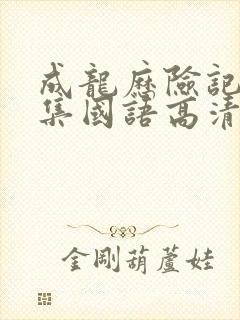 成龍歷險記
集國語高清
金剛葫蘆娃